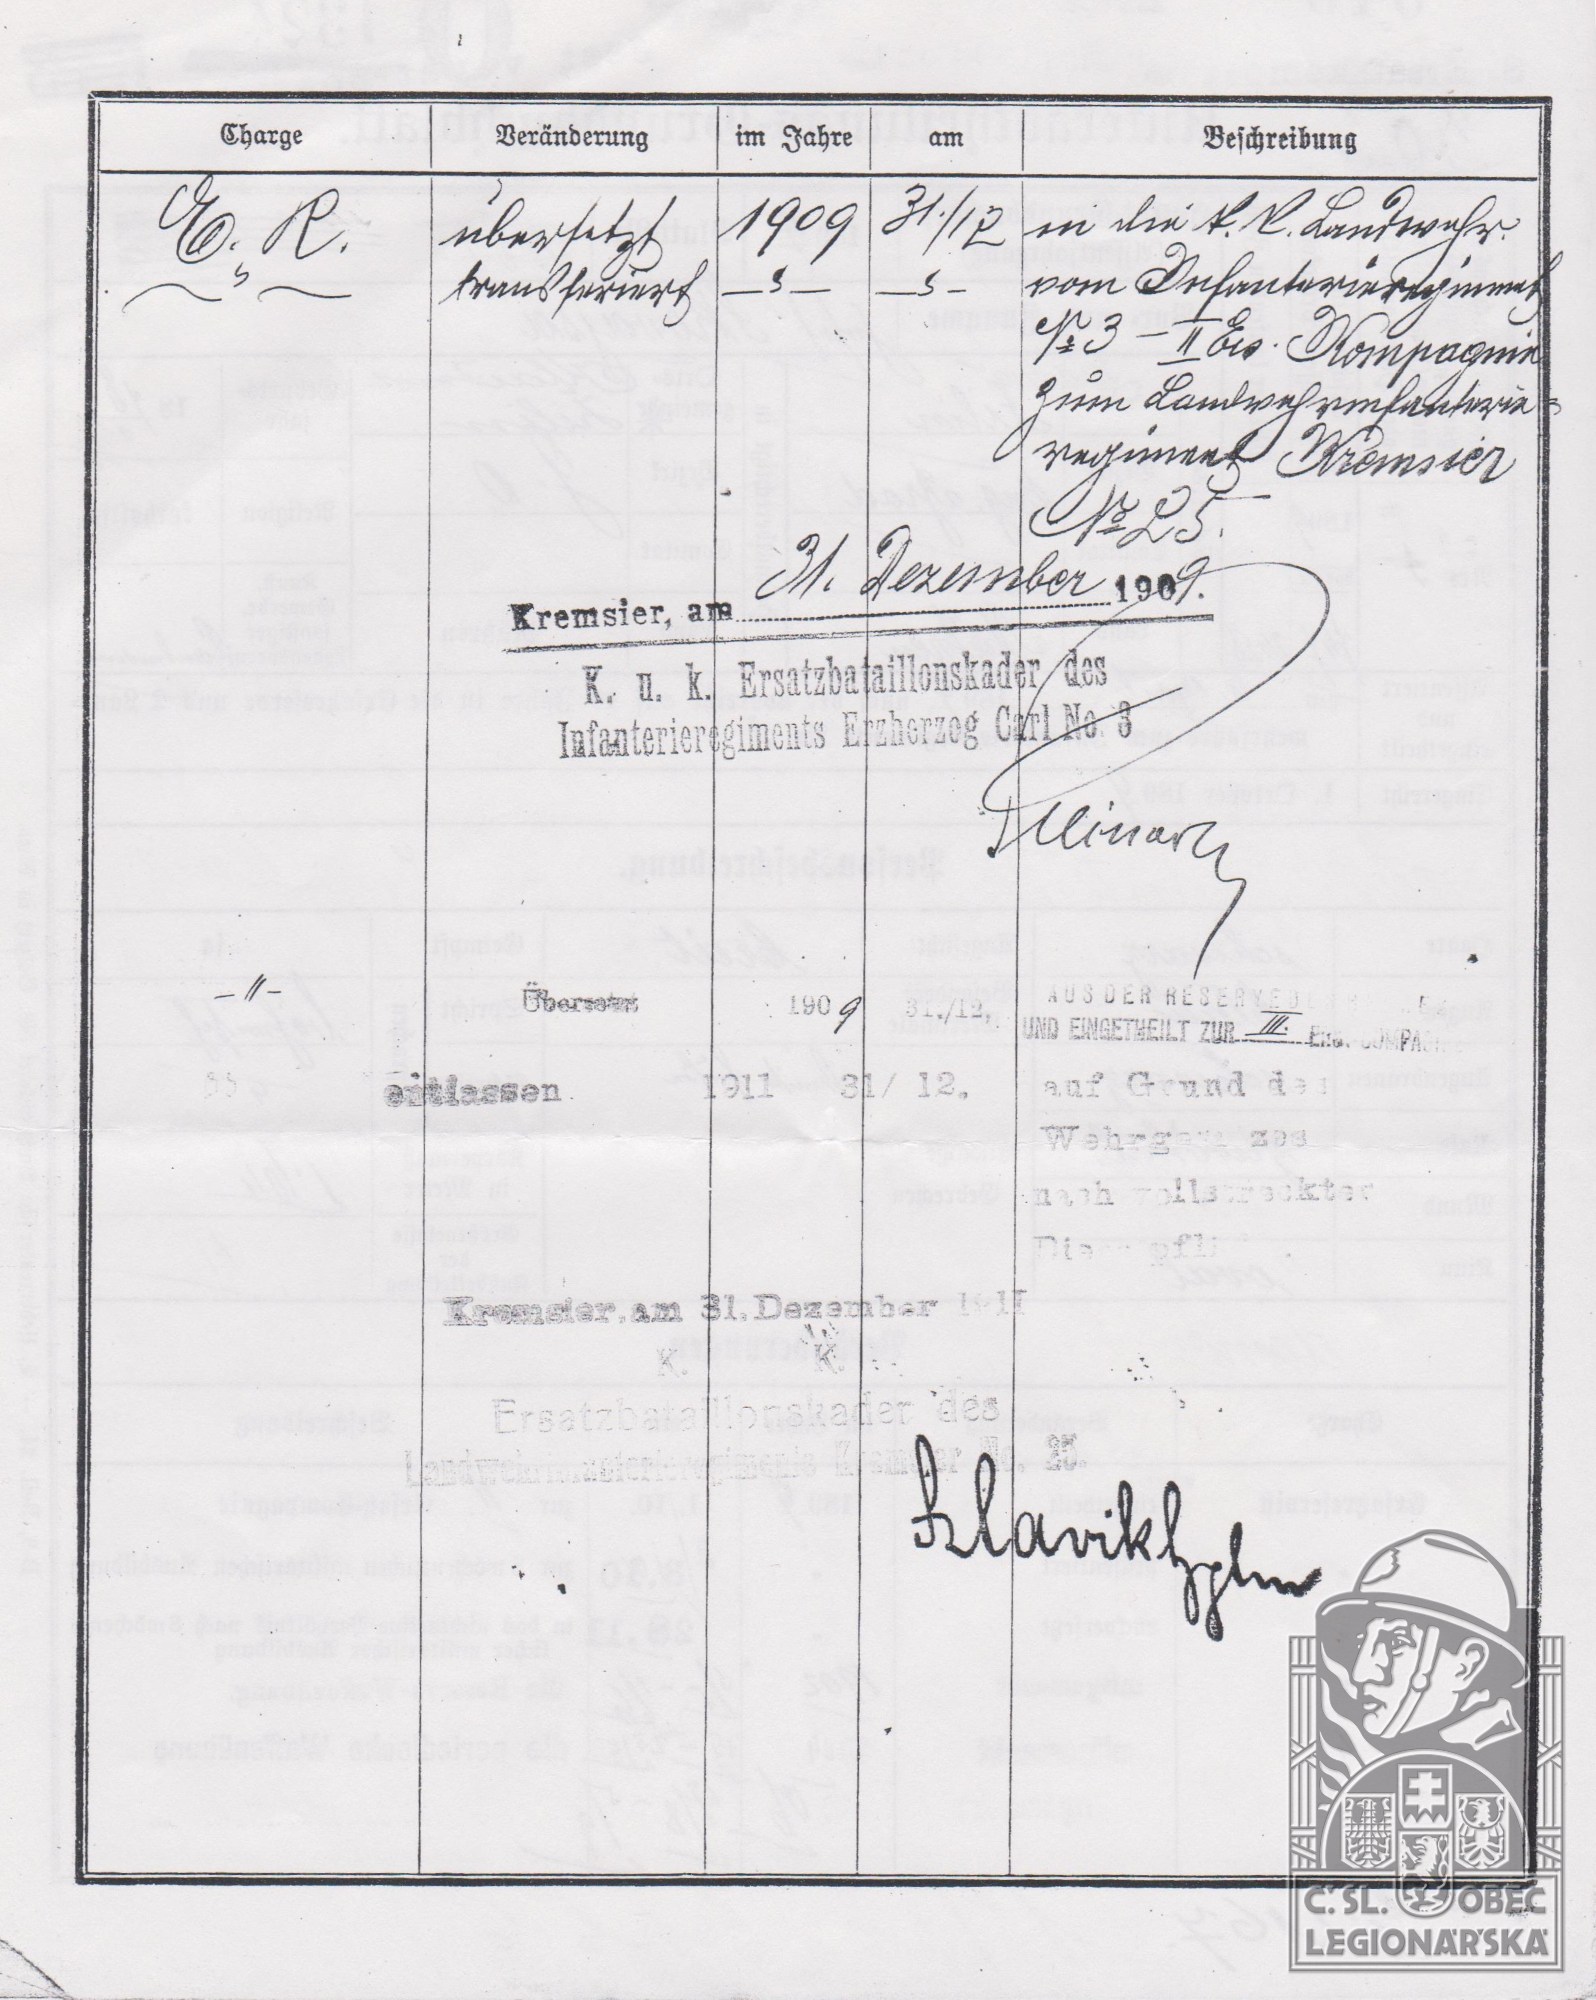 Charge Veränderung im Jahre am Beschreibung
E. R. übersetzt 1909 31./12 in die k. k. Landwehr.
transferiert vom Infanterieregiment
№ 3 - II Ers. Kompagnie
zum Landwehrinfanterie=
regiment Kremsier
№ 25.
Kremsier, am 31. Dezember 1909.
K. u. k. Ersatzbataillonskader des
Infanterieregiments Erzherzog Carl No. 3
-"- Übersetzt 1909 31./12. AUS DER RESERVE
UND EINGETHEILT ZUR III. Ers. COMPAGNIE
entlassen 1911 31/ 12. auf Grund des
Wehrgesetzes
nach vollstreckter
Dienstpflicht.
Kremsier, am 31. Dezember 1911
K. K.
Ersatzbataillonskader des
Landwehrinfanterieregiments Kremsier No. 25.
Č.SL. OBEC
LEGIONÁŘSKÁ